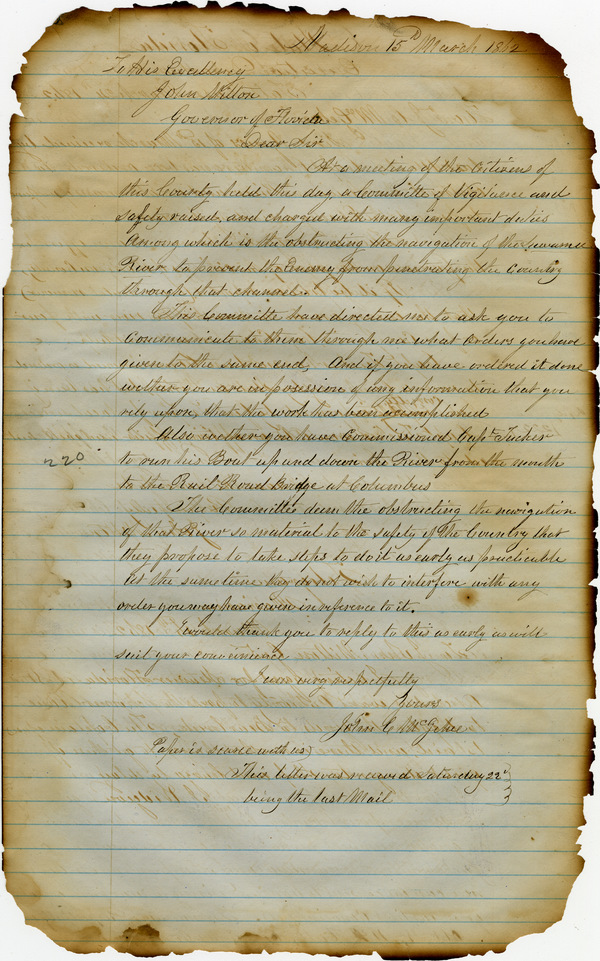 Madison 15th March 1862
To His Excellency
John Milton
Governor of Florida
Dear Sir
At a meeting of the Citizens of
this County held this day a Committe of Vigilance and
Safety raised, and charged with many important duties
among which is the obstructing the navigation of the Suwannee
River to prevent the Enemy from penetrating the Country
through that channel.
This Committe have directed me to ask you to
Communicate to them through me what orders you have
given to the same end, And if you have ordered it done
wether you are in posession of any information that you
rely upon, that the work has been accomplished
Also wether you have Commissioned Capt Tucker
to run his Boat up and down the River from the mouth
220
to the Rail Road Bridge at Columbus
The Committe deem the obstructing the navigation
of that River so material to the safety of the Country that
they propose to take steps to do it as early as practicable
At the same time they do not wish to interfere with any
order you may have given in reference to it.
I would thank you to reply to this as early as will
suit your convenience
I am very respectfully
Yours
John C McGehee
Paper is scarce with us)
This letter was received Saturday 22d
being the last Mail